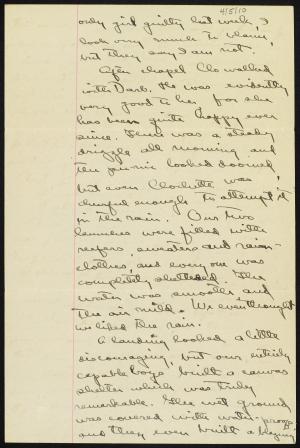 4/5/10
only girl guilty last week, I
look very much to blame,
but they say I am not.
After chapel Clo walked
with Dad. He was evidently
very good to her for she
has been quite happy ever
since. There was a steady
drizzle all morning and
the pic-nic looked doomed,
but even Clochette was
cheerful enough to attempt it
in the rain. Our two
launches were filled with
reefers, sweaters and rain-
clothes, and every one was
completely sheltered. The
water was smooth and
the air mild. We even thought
we liked the rain.
A landing looked a little
discouraging, but our entirely
capable boys built a canvas
shelter which was truly
remarkable. The wet ground
was covered with water-proofs
and they even built a blazing